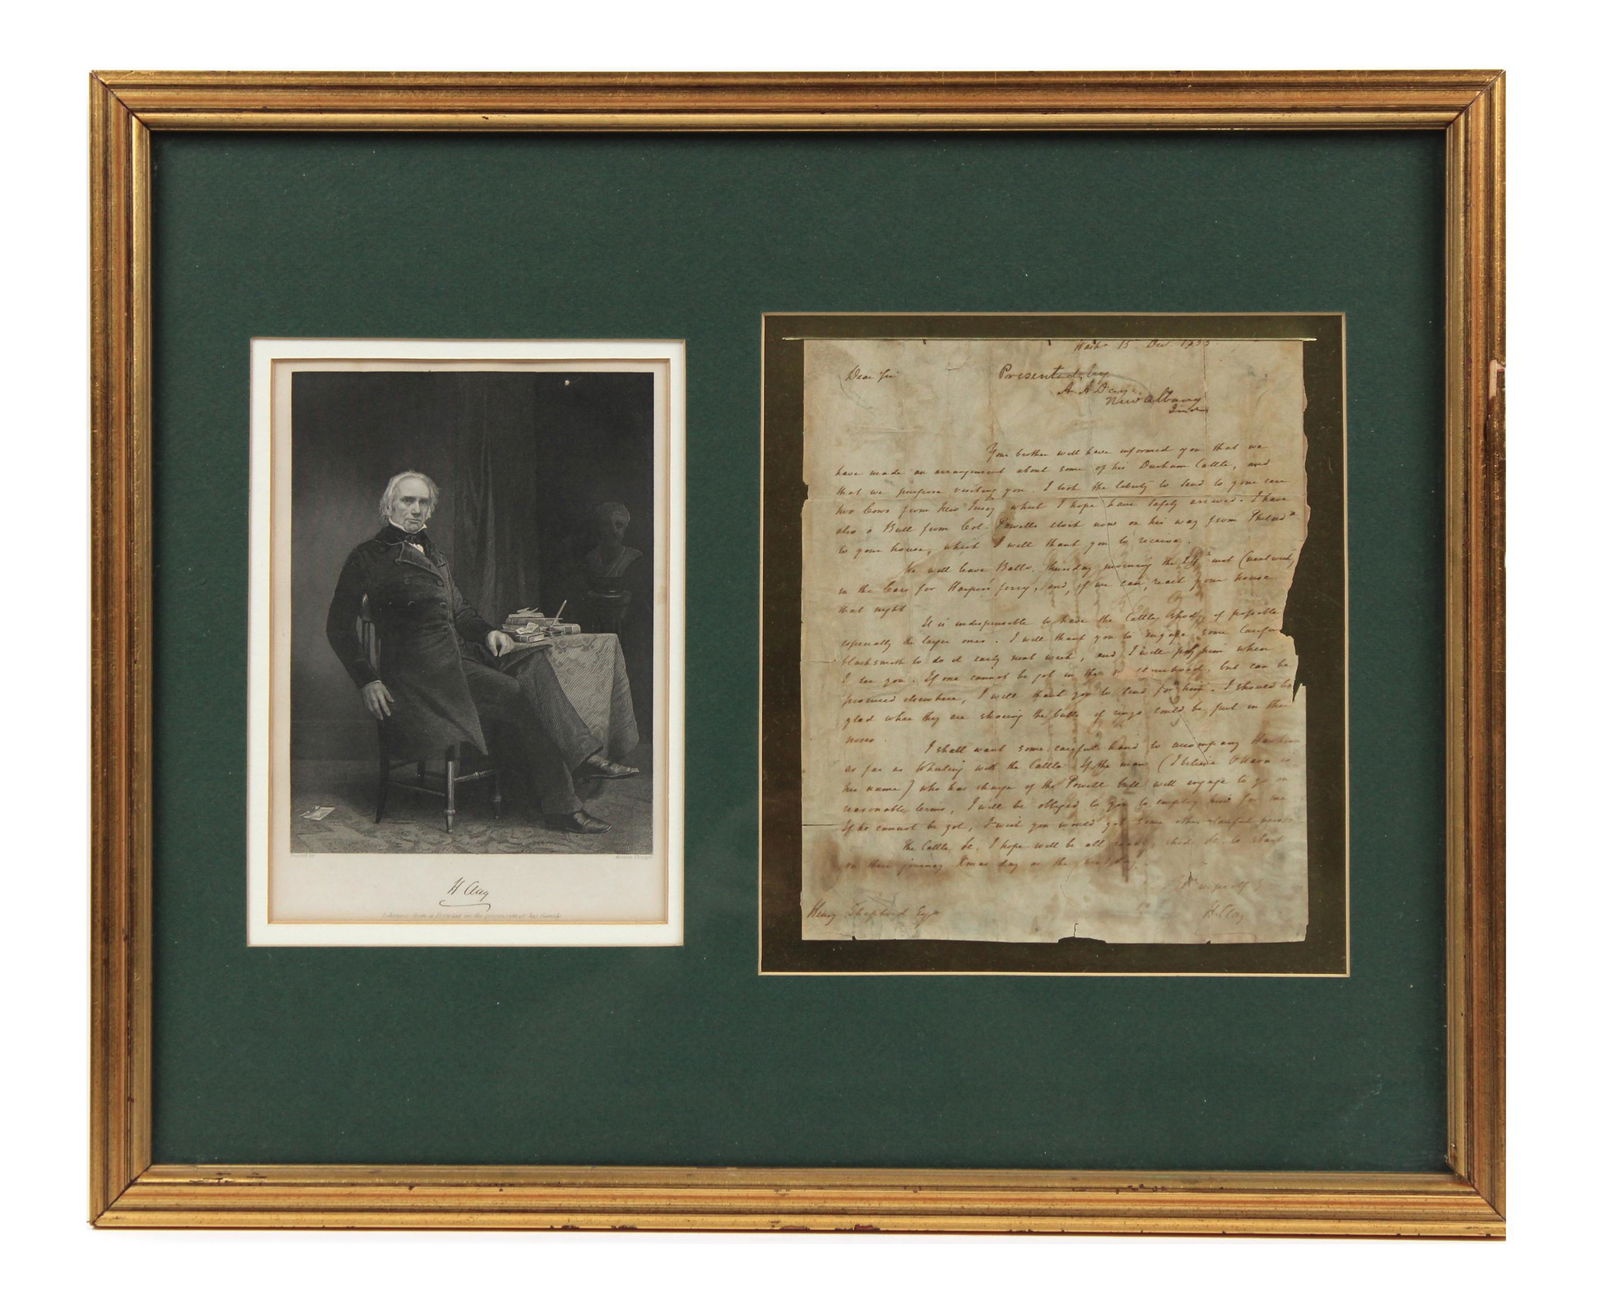 H Clay
Likeness from a
Wash 15 Dec. 1835
Dear Sir
Presented by
A. A
New Albany
Inda
Your brother will have informed you that we
have made an arrangement about some of his Durham Cattle, and
that we purpose visiting you. I took the liberty to send to your care
two Cows from New Jersey which I hope have safely arrived. I have
also a Bull from Col. Powells stock now on his way from Philada
to your house, which I will thank you to receive.
We will leave Balto. Thursday morning the inst (next week)
in the Cars for Harpers ferry, and, if we can, reach your house
that night
It is indispensable to have the Cattle shod, if possible
especially the larger ones. I will thank you to engage some careful
blacksmith to do it early next week, and I will pay him when
I see you. If one cannot be got in the neighborhood, but can be
procured elsewhere, I will thank you to send for him. I should be
glad when they are shoeing the bulls if rings could be put in their
noses.
I shall want some careful hand to accompany
as far as Wheeling with the Cattle. If the man (I believe O'Hara is
his name) who has charge of the Powell bull will engage to go on
reasonable terms, I will be obliged to you to employ him for me
If he cannot be got, I wish you would get some other careful person
The Cattle &c. I hope will be all ready, shod &c. to start
on their journey Xmas day or the next day.
H. Clay
Henry Shepherd Esqr